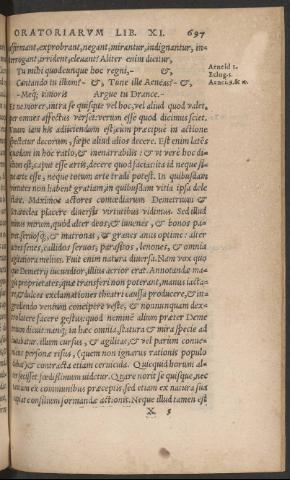 ORATORIARVM LIB. XI. 697
affirmant, exprobrant, negant, mirantur, indignantur, in-
terrogant, irrident, eleuant? Aliter enim dicitur,
Tu mihi quodcunque hoc regni,- &,
Aeneid 1.
Cantando tu illum?- &, Tune ille Aeneas?- &,
-Meq; timoris Argue tu Drance.-
Et ne morer, intra se quisque vel hoc, vel aliud quod valet,
per omnes affectus verset: verum esse quod dicimus sciet.
Vnum iam his adiiciendum est: cum præcipue in actione
spectetur decorum, sæpe aliud alios decere. Est enim latens
quædam in hoc ratio, & inenarrabilis: & vt vere hoc di-
ctum est, caput esse artis, decere quod facias: ita id neque si-
ne arte esse, neque totum arte tradi potest. In quibusdam
virtutes non habent gratiam, in quibusdam vitia ipsa dele-
ctant. Maximos actores comœdiarum Demetrium &
Stratoclea placere diuersis virtutibus vidimus. Sed illud
minus mirum, quòd alter deos, & iuuenes, & bonos pa-
tres, seruosq;, & matronas, & graues anus optime: alter
acres senes, callidos seruos, parasitos, lenones, & omnia
agitatiora melius. Fuit enim natura diuersa. Nam vox quo
que Demetrij iucundior, illius acrior erat. Annotandæ ma-
gis proprietates, quæ transferri non poterant, manus iacta-
re, & dulces exclamationes theatri caussa producere, & in-
grediendo ventum concipere veste, & nonnunquam dex-
tro latere facere gestus: quod neminem alium præter Deme
trium decuit: nanq; in hæc omnia, statura & mira specie ad
iuuabatur. illum cursus, & agilitas, & vel parum conue-
niens personæ risus, (quem non ignarus rationis populo
dabat) & contracta etiam ceruicula. Quicquid horum al-
ter fecisset, fœdissimum uideretur. Quare norit se quisque, nec
tantum ex communibus præceptis, sed etiam ex natura sua
capiat consilium formandæ actionis. Neque illud tamen est
X 5